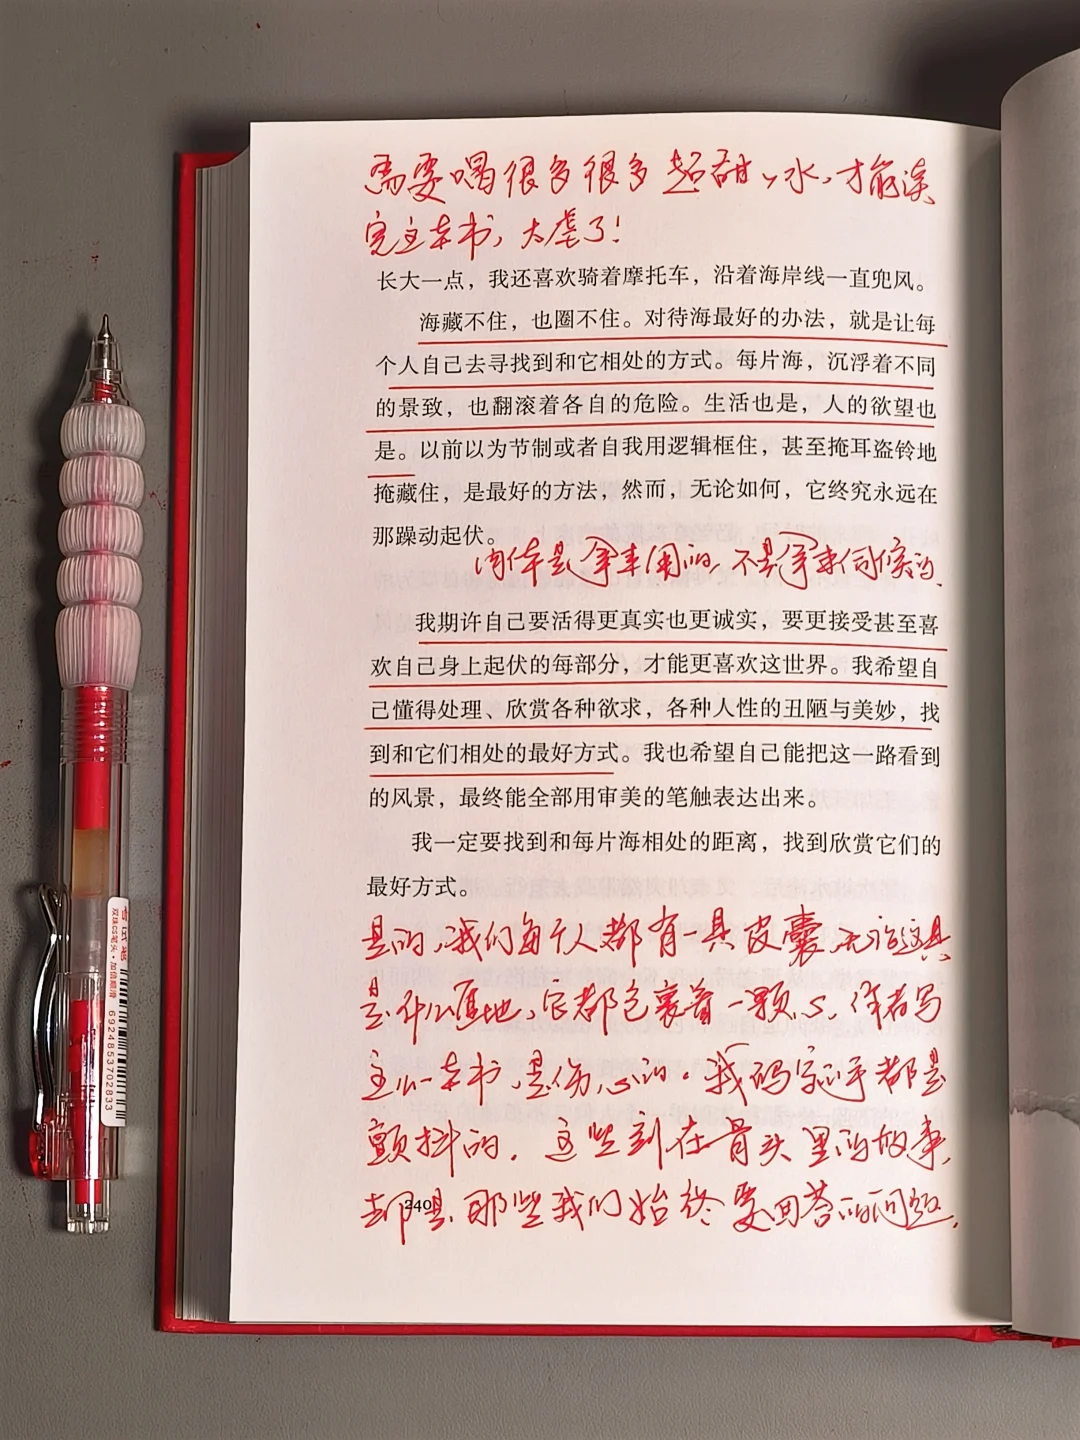 需要喝很多很多超甜的水,才能读
完这本书,太虐了!
长大一点,我还喜欢骑着摩托车,沿着海岸线一直兜风。
海藏不住,也圈不住。对待海最好的办法,就是让每
个人自己去寻找到和它相处的方式。每片海,沉浮着不同
的景致,也翻滚着各自的危险。生活也是,人的欲望也
是。以前以为节制或者自我用逻辑框住,甚至掩耳盗铃地
掩藏住,是最好的方法,然而,无论如何,它终究永远在
那躁动起伏。
肉体是拿来用的,不是拿来伺候的.
我期许自己要活得更真实也更诚实,要更接受甚至喜
欢自己身上起伏的每部分,才能更喜欢这世界。我希望自
己懂得处理、欣赏各种欲求,各种人性的丑陋与美妙,找
到和它们相处的最好方式。我也希望自己能把这一路看到
的风景,最终能全部用审美的笔触表达出来。
我一定要找到和每片海相处的距离,找到欣赏它们的
最好方式。
是的,我们每个人都有一具皮囊,无论这具
是什么质地,它都包裹着一颗心,作者写
这么一本书,是伤心的。我码字的手都是
颤抖的。这些刻在骨头里的故事,
却是那些我们始终要回答的问题.
240
双珠CS笔头·加倍顺滑
6924853702833